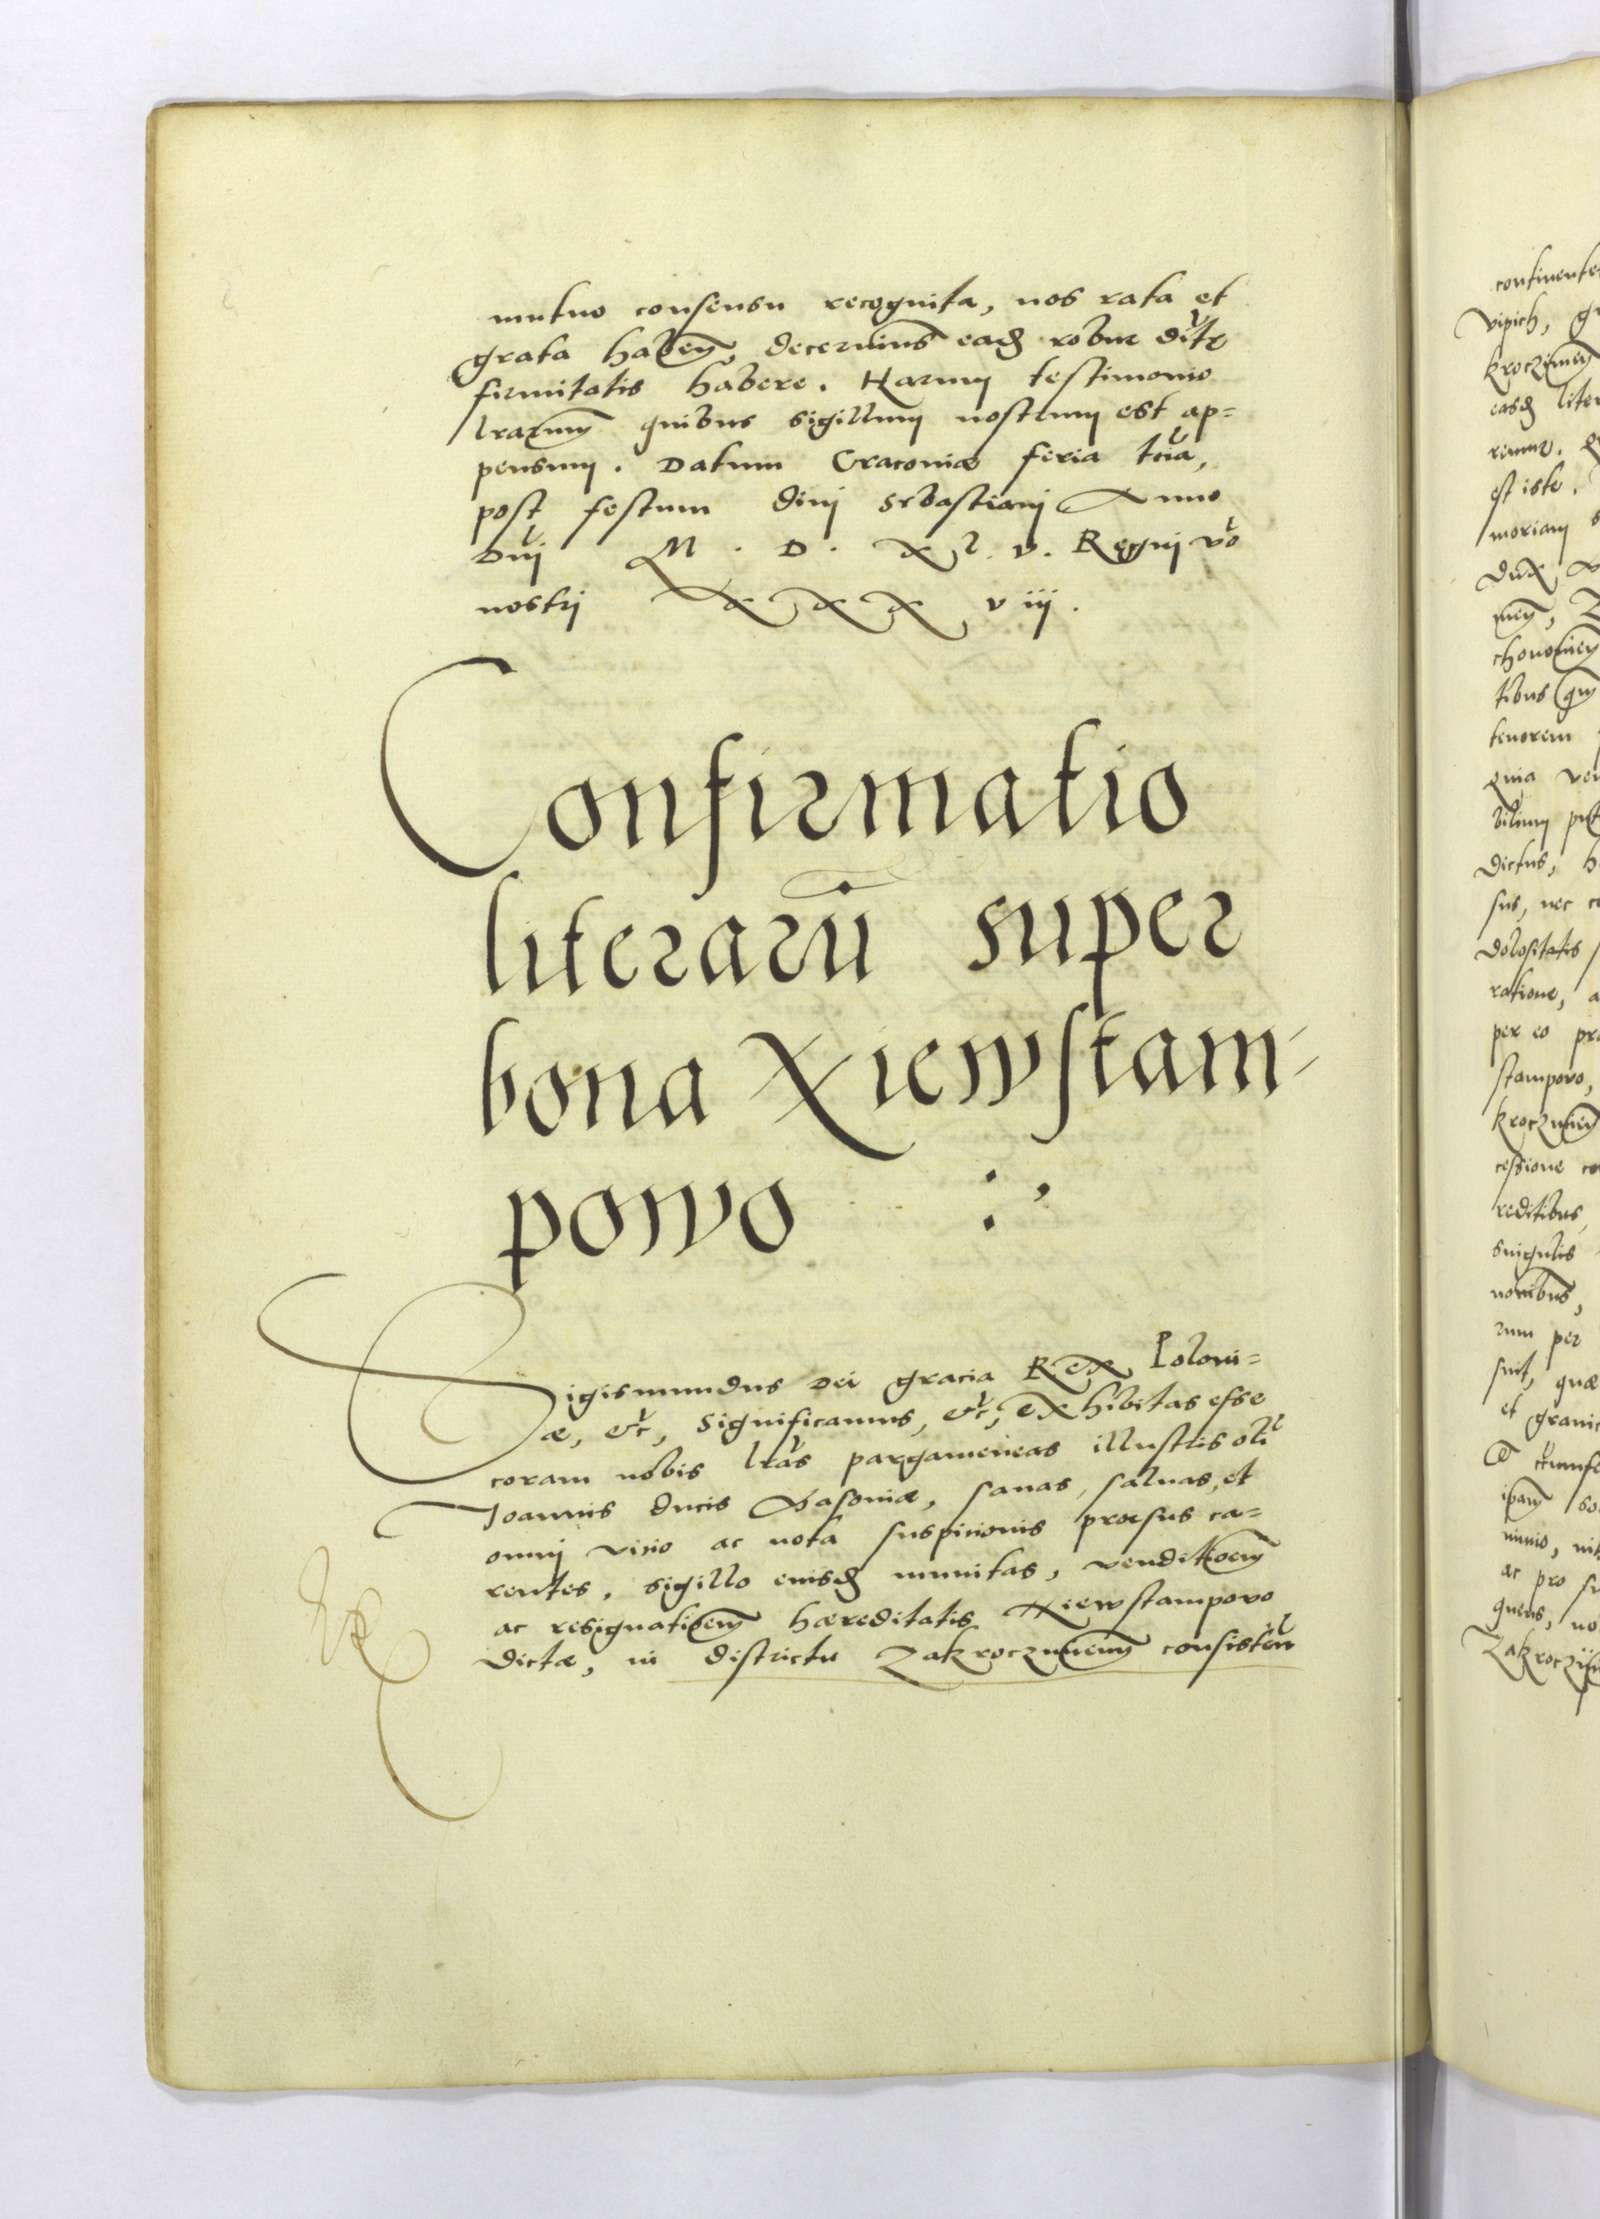 mutuo consensu recognita, nos rata et
grata haben̄, decernimus eadē robur dite
firmitatis habere. Harum testimonio
lrarum quibus sigillum nostrum est ap=
pensum. Datum Cracoviae feria tcia,
post festum divi Sebastiani Anno
Dni M. D. Xl. v. Regni vo
nostri XXX viij.
Confirmatio
literarū super
bona Xiewstam-
powo
Sigismundus Dei gracia Rex Poloni=
ae, etc, significamus, etc, Exhibitas esse
coram nobis lras pargameneas illustris oli
Joannis ducis Masoviae, sanas, salvas, et
omni vicio ac nota suspicionis prorsus ca=
rentes, sigillo eiusdē munitas, vendittoem
ac resignatioem haereditatis Xiewstampovo
dictae, in districtu Zakroczimieñ consisteñ
continente
vipich, gr
kroczimen
easdē liter
remur.
est iste.
moriam s
Dux
men,
chonovien
tibus
tenorem
quia ven
bilium
dictus, h
sus, nec c
dolositatis
ratione, a
per eo pra
stampovo,
kroczimien
cessione co
reditibus,
singulis
novibus,
rum per
sint, quae
et granic
cirumfe
ipam so
nimio, nih
ac pro su
quens, no
Zakroczim